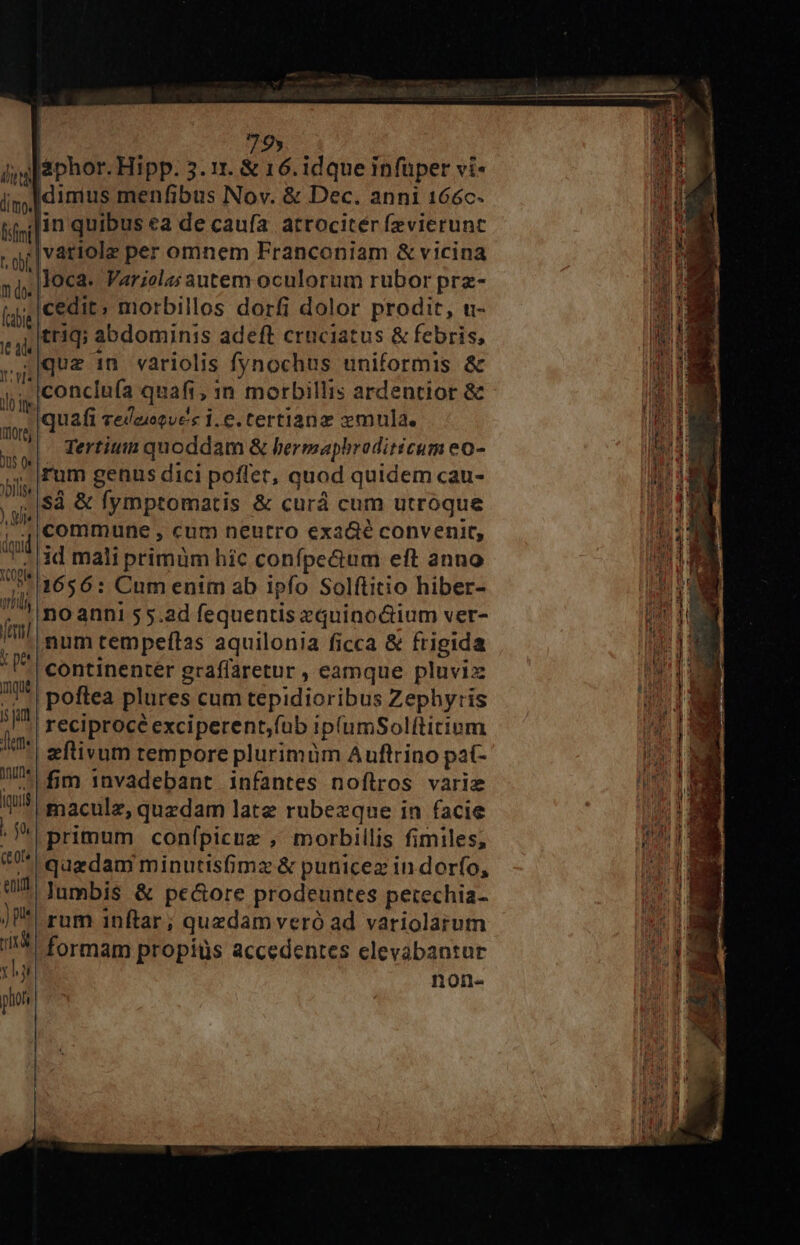 79
aphor. Hipp. 3. 11. & 16. idque inſuper vi-
dimus menſibus Nov. & Dec. anni 1660.
in quibus ea de cauſa atrocitér ſævierunt
variolæ per omnem Franconiam & vicina
loca. Variolas autem oculorum rubor præ-
cedit, morbillos dorſi dolor prodit, u-
triq; abdominis adeſt cruciatus & febris,
quæ in variolis ſynochus uniformis &
concluſa quaſi, in morbillis ardentior &
quaſi i. e. tertianæ æmula.
Tertium quoddam & hermaphroditicum eo-
rum genus dici poſſet, quod quidem cau-
sâ & ſymptomatis & curâ cum utroque
commune, cum neutro exactè convenit,
id mali primùm hîc conſpectum eſt anno
1656: Cum enim ab ipſo Solſtitio hiber-
no anni 55. ad ſequentis æquinoctium ver-
num tempeſtas aquilonia ſicca & frigida
continentèr graſſaretur, eamque pluviæ
poſtea plures cum tepidioribus Zephyris
reciprocè exciperent, ſub ipſum Solſtitium
æſtivum tempore plurimùm Auſtrino paſ-
ſim invadebant infantes noſtros variæ
maculæ, quædam latæ rubezque in facie
primum conſpicuæ, morbillis ſimiles,
quædam minutisſimæ & puniceæ in dorſo,
lumbis & pectore prodeuntes petechia-
rum inſtar; quædam verò ad variolarum
formam propiùs accedentes elevabantur
non-